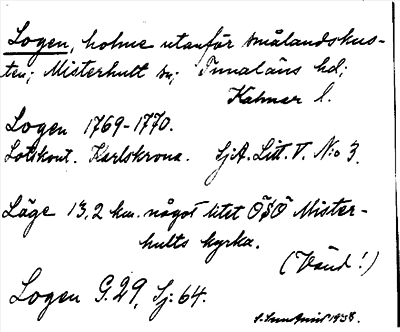 Logen, holme utanför smålandskus-
ten; Misterhult sn; Tunaläns hd;
Kalmar l.
Logen 1769-1770.
Lotskont. Karlskrona. SjA. Litt. V. N:o 3.
Läge 13,2 km. något litet ÖSÖ Mister-
hults kyrka.
(Vänd!)
Logen G.29, Sj: 64.
1938.